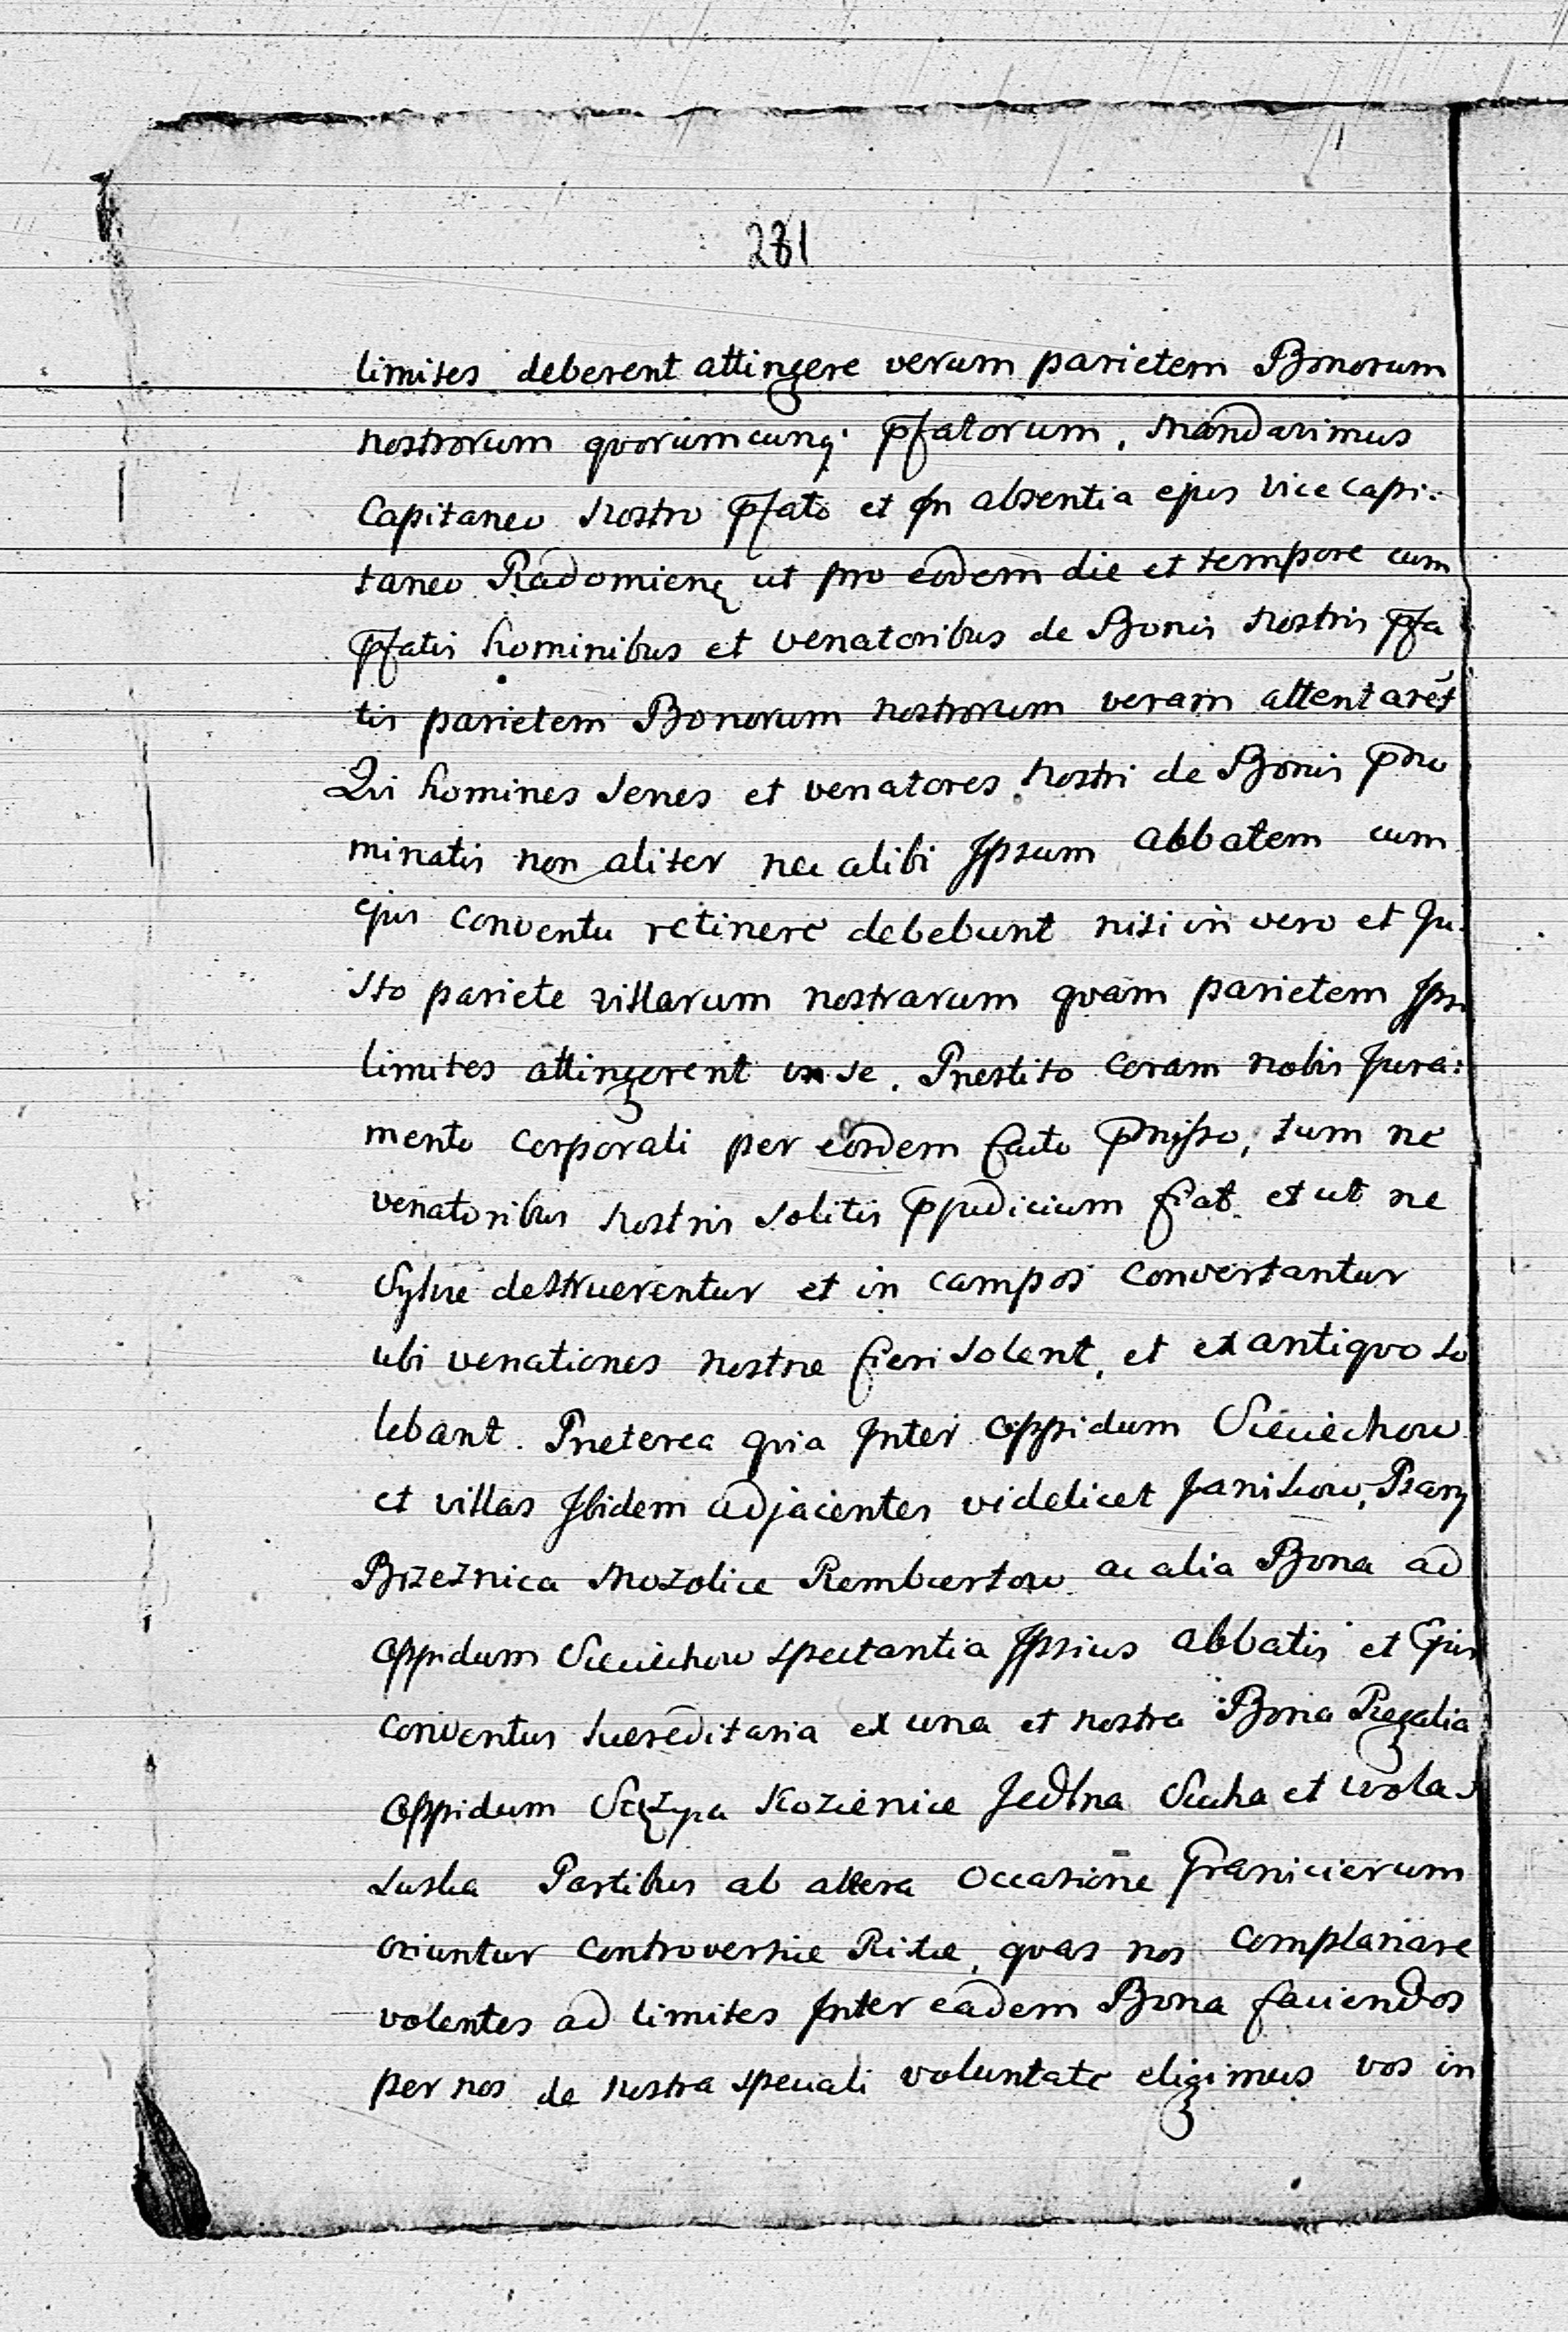 281
limites deberent attingere verum parietem Bonorum
nostrorum quorumcunq; pfatorum, Mandavimus
Capitaneo Nostro pfato et In absentia ejus Vice capi:
taneo Radomien ut pro eodem die et tempore cum
pfatis hominibus et venatoribus de Bonis Nostris pfa
tis parietem Bonorum nostrorum veram attentaret
Qui homines Senes et venatores Nostri de Bonis pno
minatis non aliter nec alibi Ipsum Abbatem cum
ejus Conventu retinere debebunt nisi in vero et Ju:
sto pariete villarum nostrarum quam parietem Ipsi
limites attingerent in se. Prestito Coram nobis Jura:
mento Corporali per eosdem facto pmisso, tum ne
venatoribus Nostris Solitis pjudicium fiat et ut ne
Sylvae destruerentur et in campos Convertantur
ubi venationes nostrae fieri Solent, et ex antiquo So
lebant. Praeterea quia Inter Oppidum Sieciechow
et villas Ibidem adjacentes videlicet Janikow, Psary
Brzeznica Mozolice Rembertow ac alia Bona ad
Oppidum Sieciechow spectantia Ipsius Abbatis et Ejus
Conventus haereditaria ex una et nostra Bona Regalia
Oppidum Kozienice Jedlna Sucha et Wola
Partibus ab altera Occasione Granicierum
oriuntur Controversiae Rixae, quas nos Complanare
volentes ad limites Inter eadem Bona faciendos
per nos de Nostra speciali voluntate eligimus vos in